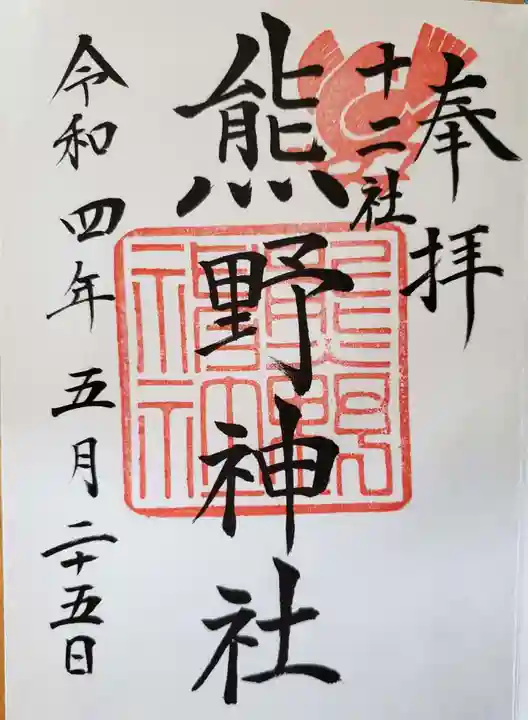 奉拝
十二社
熊野神社
令和四年五月二十五日